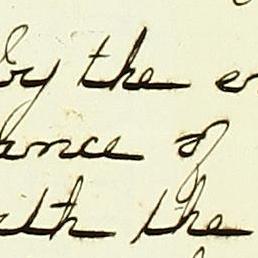 by the
ance of
ith the